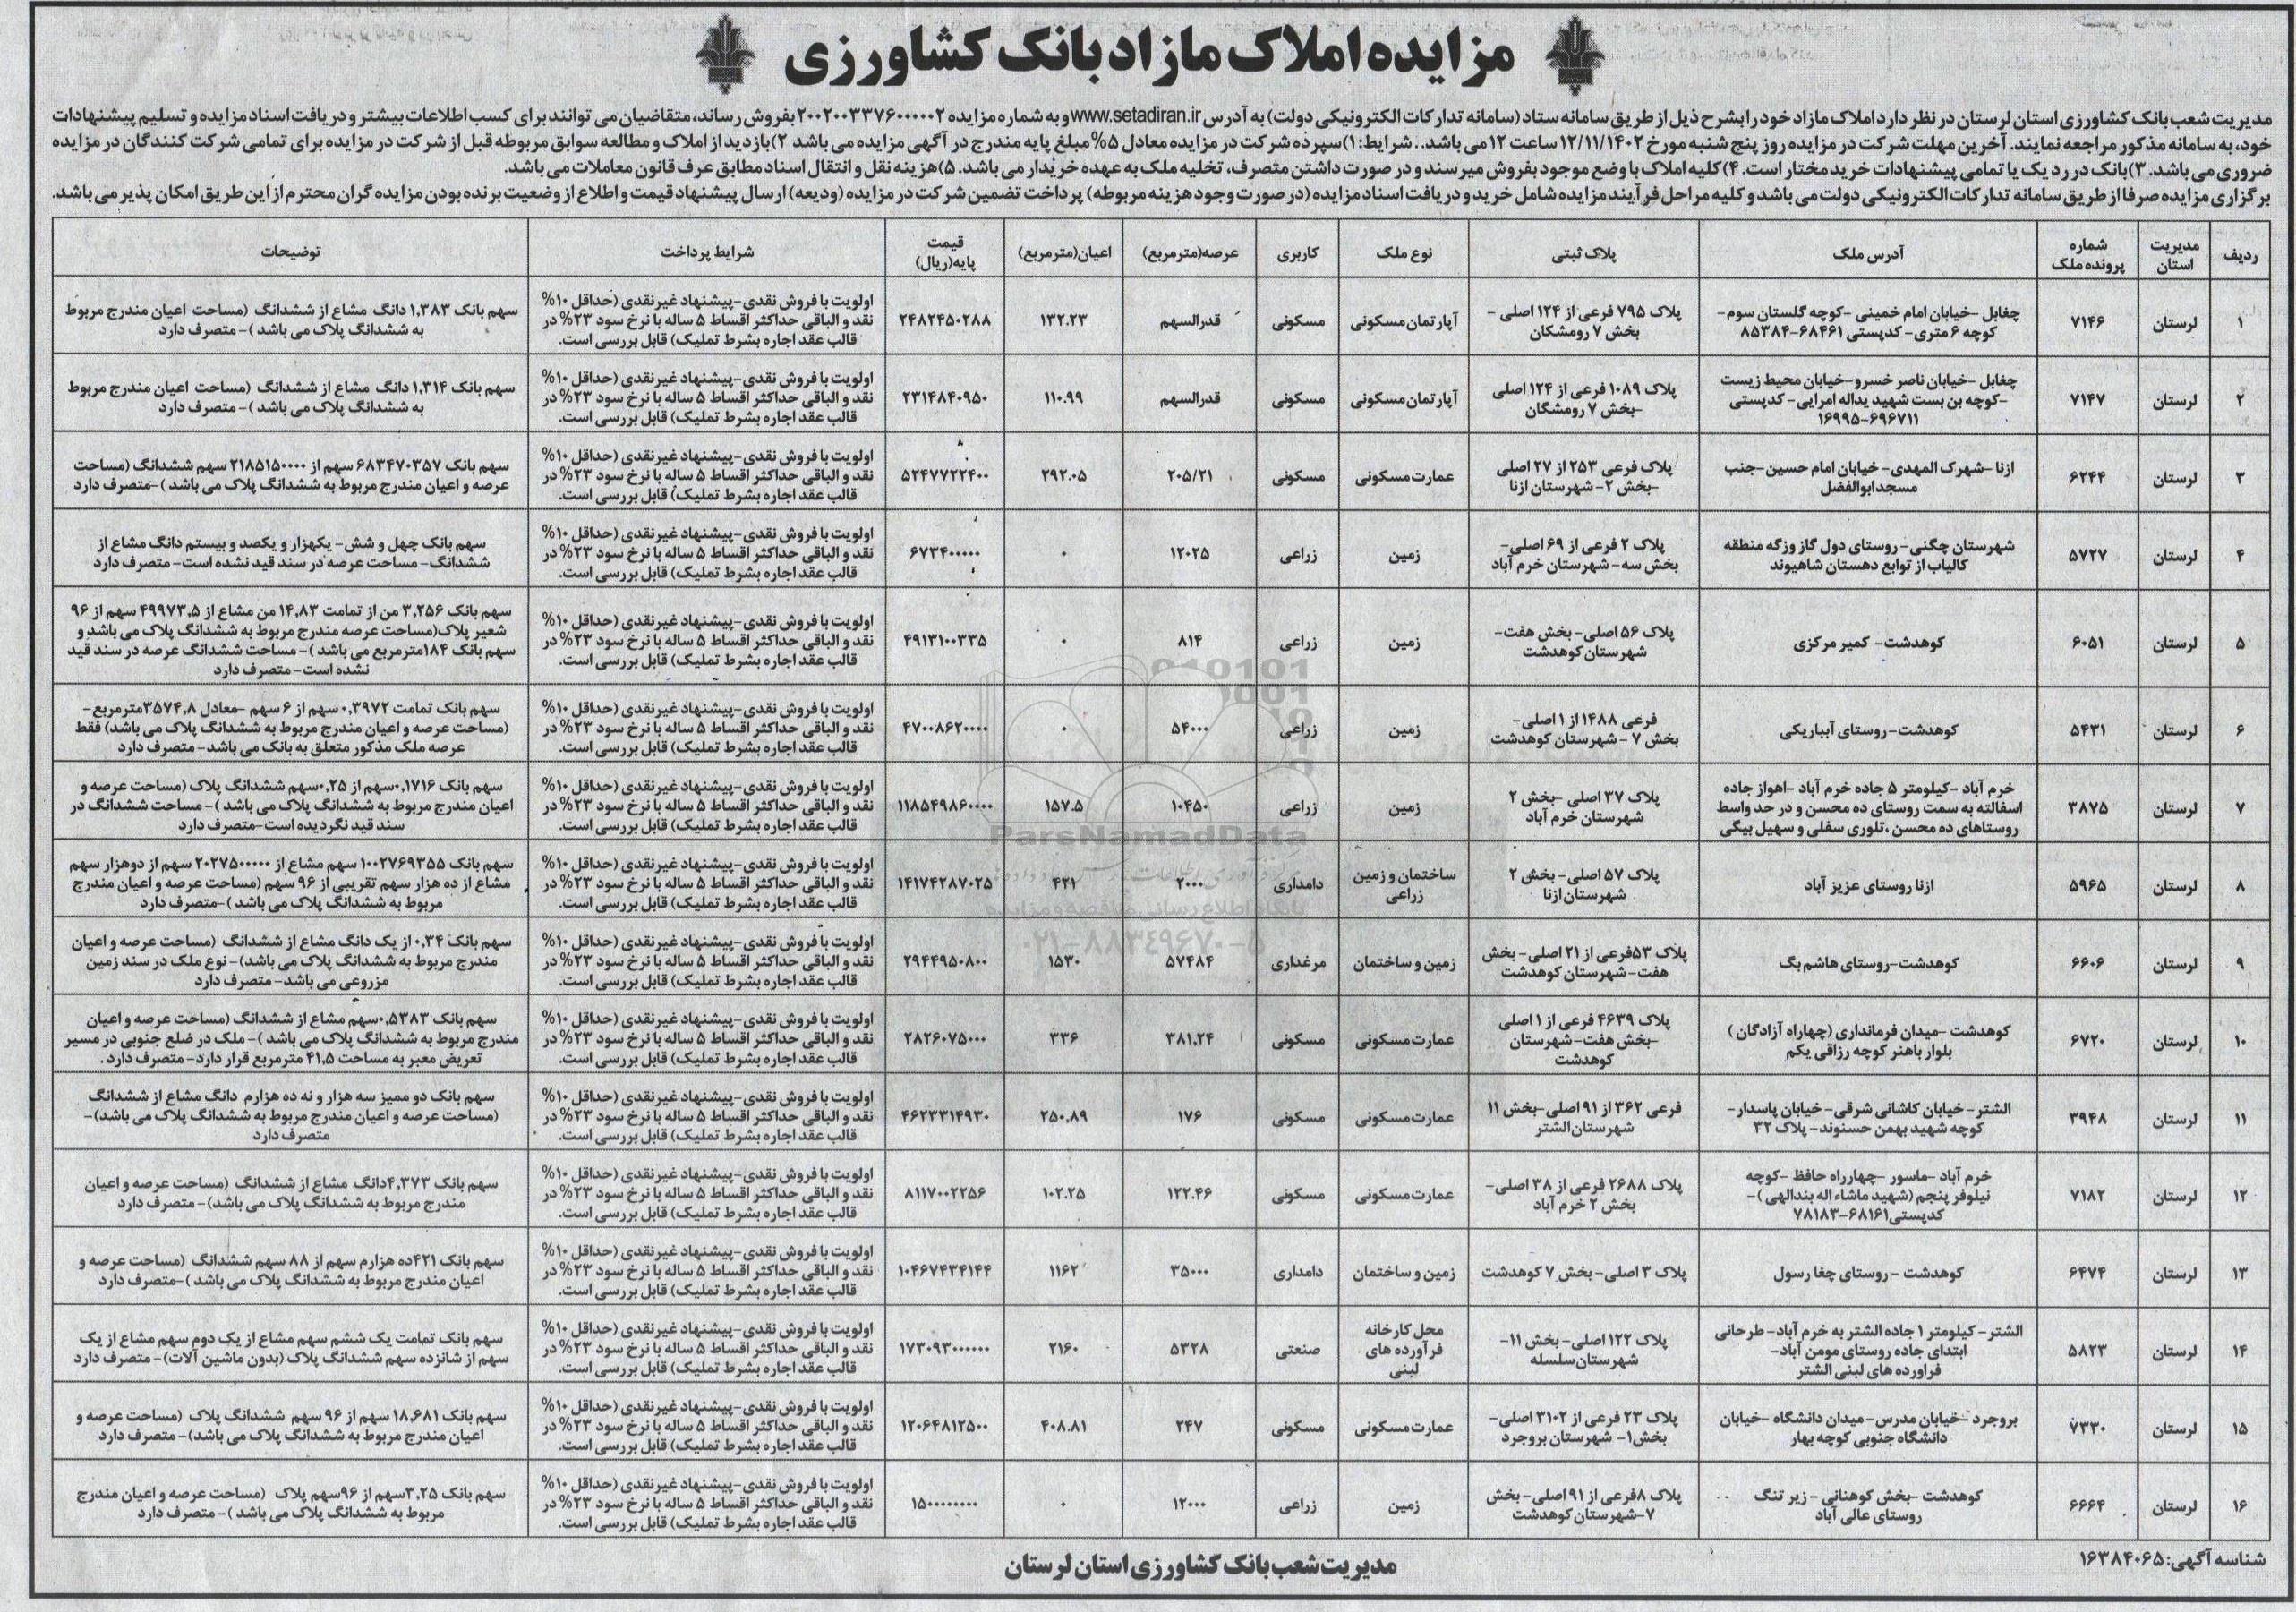 مزایده املاک مازاد بانک کشاورزی
مدیریت شعب بانک کشاورزی استان لرستان در نظر دارد املاک مازاد خود را بشرح ذیل از طریق سامانه ستاد (سامانه تدارکات الکترونیکی دولت) به آدرس www.setadiran.ir و به شماره مزایده ۲۰۰۲۰۰۳۳۷۶۰۰۰۰۰۲ بفروش رساند، متقاضیان می توانند برای کسب اطلاعات بیشتر و دریافت اسناد مزایده و تسلیم پیشنهادات
خود، به سامانه مذکور مراجعه نمایند. آخرین مهلت شرکت در مزایده روز پنج شنبه مورخ ۱۲/۱۱/۱۴۰۲ ساعت ۱۲ می باشد.. شرایط: ۱)سپرده شرکت در مزایده معادل ۵% مبلغ پایه مندرج در آگهی مزایده می باشد ۲)بازدید از املاک و مطالعه سوابق مربوطه قبل از شرکت در مزایده برای تمامی شرکت کنندگان در مزایده
ضروری می باشد. ۳)بانک در رد یک یا تمامی پیشنهادات خرید مختار است. ۴)کلیه املاک با وضع موجود بفروش میرسند و در صورت داشتن متصرف، تخلیه ملک به عهده خریدار می باشد. ۵)هزینه نقل و انتقال اسناد مطابق عرف قانون معاملات می باشد.
برگزاری مزایده صرفا از طریق سامانه تدارکات الکترونیکی دولت می باشد و کلیه مراحل فرآیند مزایده شامل خرید و دریافت اسناد مزایده (در صورت وجود هزینه مربوطه) پرداخت تضمین شرکت در مزایده (ودیعه) ارسال پیشنهاد قیمت و اطلاع از وضعیت برنده بودن مزایده گران محترم از این طریق امکان پذیر می باشد.
ردیف | مدیریت استان | شماره پرونده ملک | آدرس ملک | پلاک ثبتی | نوع ملک | کاربری | عرصه(مترمربع) | اعیان(مترمربع) | قیمت پایه(ریال) | شرایط پرداخت | توضیحات
۱ | لرستان | ۷۱۴۶ | چغابل -خیابان امام خمینی -کوچه گلستان سوم- کوچه ۶ متری- کدپستی ۶۸۴۶۱-۸۵۳۸۴ | پلاک ۷۹۵ فرعی از ۱۲۴ اصلی - بخش ۷ رومشکان | آپارتمان مسکونی | مسکونی | قدرالسهم | ۱۳۲.۲۳ | ۲۴۸۲۴۵۰۲۸۸ | اولویت با فروش نقدی-پیشنهاد غیرنقدی (حداقل ۱۰% نقد و الباقی حداکثر اقساط ۵ ساله با نرخ سود ۲۳% در قالب عقد اجاره بشرط تملیک) قابل بررسی است. | سهم بانک ۱,۳۸۳ دانگ مشاع از ششدانگ (مساحت اعیان مندرج مربوط به ششدانگ پلاک می باشد )- متصرف دارد
۲ | لرستان | ۷۱۴۷ | چغابل -خیابان ناصر خسرو-خیابان محیط زیست -کوچه بن بست شهید یداله امرایی- کدپستی ۶۹۶۷۱۱-۱۶۹۹۵ | پلاک ۱۰۸۹ فرعی از ۱۲۴ اصلی -بخش ۷ رومشگان | آپارتمان مسکونی | مسکونی | قدرالسهم | ۱۱۰.۹۹ | ۲۳۱۴۸۴۰۹۵۰ | اولویت با فروش نقدی-پیشنهاد غیرنقدی (حداقل ۱۰% نقد و الباقی حداکثر اقساط ۵ ساله با نرخ سود ۲۳% در قالب عقد اجاره بشرط تملیک) قابل بررسی است. | سهم بانک ۱,۳۱۴ دانگ مشاع از ششدانگ (مساحت اعیان مندرج مربوط به ششدانگ پلاک می باشد )- متصرف دارد
۳ | لرستان | ۶۲۴۴ | ازنا-شهرک المهدی- خیابان امام حسین-جنب مسجدابوالفضل | پلاک فرعی ۲۵۳ از ۲۷ اصلی -بخش ۲- شهرستان ازنا | عمارت مسکونی | مسکونی | ۲۰۵/۲۱ | ۲۹۲.۰۵ | ۵۲۴۷۷۲۲۴۰۰ | اولویت با فروش نقدی-پیشنهاد غیرنقدی (حداقل ۱۰% نقد و الباقی حداکثر اقساط ۵ ساله با نرخ سود ۲۳% در قالب عقد اجاره بشرط تملیک) قابل بررسی است. | سهم بانک ۶۸۳۴۷۰۳۵۷ سهم از ۲۱۸۵۱۵۰۰۰۰ سهم ششدانگ (مساحت عرصه و اعیان مندرج مربوط به ششدانگ پلاک می باشد )-متصرف دارد
۴ | لرستان | ۵۷۲۷ | شهرستان چگنی- روستای دول گاز وزگه منطقه کالیاب از توابع دهستان شاهیوند | پلاک ۲ فرعی از ۶۹ اصلی- بخش سه- شهرستان خرم آباد | زمین | زراعی | ۱۲۰۲۵ | ۰ | ۶۷۳۴۰۰۰۰۰ | اولویت با فروش نقدی-پیشنهاد غیرنقدی (حداقل ۱۰% نقد و الباقی حداکثر اقساط ۵ ساله با نرخ سود ۲۳% در قالب عقد اجاره بشرط تملیک) قابل بررسی است. | سهم بانک چهل و شش- یکهزار و یکصد و بیستم دانگ مشاع از ششدانگ- مساحت عرصه در سند قید نشده است- متصرف دارد
۵ | لرستان | ۶۰۵۱ | کوهدشت- کمیر مرکزی | پلاک ۵۶ اصلی- بخش هفت- شهرستان کوهدشت | زمین | زراعی | ۸۱۴ | ۰ | ۴۹۱۳۱۰۰۳۳۵ | اولویت با فروش نقدی-پیشنهاد غیرنقدی (حداقل ۱۰% نقد و الباقی حداکثر اقساط ۵ ساله با نرخ سود ۲۳% در قالب عقد اجاره بشرط تملیک) قابل بررسی است. | سهم بانک ۳,۲۵۶ من از تمامت ۱۴,۸۳ من مشاع از ۴۹۹۷۳,۵ سهم از ۹۶ شعیر پلاک(مساحت عرصه مندرج مربوط به ششدانگ پلاک می باشد و سهم بانک ۱۸۴مترمربع می باشد )- مساحت ششدانگ عرصه در سند قید نشده است- متصرف دارد
۶ | لرستان | ۵۴۳۱ | کوهدشت-روستای آبباریکی | فرعی ۱۴۸۸ از ۱ اصلی- بخش ۷ - شهرستان کوهدشت | زمین | زراعی | ۵۴۰۰۰ | ۰ | ۴۷۰۰۸۶۲۰۰۰۰ | اولویت با فروش نقدی-پیشنهاد غیرنقدی (حداقل ۱۰% نقد و الباقی حداکثر اقساط ۵ ساله با نرخ سود ۲۳% در قالب عقد اجاره بشرط تملیک) قابل بررسی است. | سهم بانک تمامت ۰,۳۹۷۲ سهم از ۶ سهم -معادل ۳۵۷۴,۸مترمربع- (مساحت عرصه و اعیان مندرج مربوط به ششدانگ پلاک می باشد) فقط عرصه ملک مذکور متعلق به بانک می باشد- متصرف دارد
۷ | لرستان | ۳۸۷۵ | خرم آباد -کیلومتر ۵ جاده خرم آباد -اهواز جاده اسفالته به سمت روستای ده محسن و در حد واسط روستاهای ده محسن ،تلوری سفلی و سهیل بیگی | پلاک ۳۷ اصلی -بخش ۲ شهرستان خرم آباد | زمین | زراعی | ۱۰۴۵۰ | ۱۵۷.۵ | ۱۱۸۵۴۹۸۶۰۰۰۰ | اولویت با فروش نقدی-پیشنهاد غیرنقدی (حداقل ۱۰% نقد و الباقی حداکثر اقساط ۵ ساله با نرخ سود ۲۳% در قالب عقد اجاره بشرط تملیک) قابل بررسی است. | سهم بانک ۰,۱۷۱۶سهم از ۰,۲۵سهم ششدانگ پلاک (مساحت عرصه و اعیان مندرج مربوط به ششدانگ پلاک می باشد )- مساحت ششدانگ در سند قید نگردیده است-متصرف دارد
۸ | لرستان | ۵۹۶۵ | ازنا روستای عزیز آباد | پلاک ۵۷ اصلی- بخش ۲ شهرستان ازنا | ساختمان و زمین زراعی | دامداری | ۲۰۰۰ | ۴۲۱ | ۱۴۱۷۴۲۸۷۰۲۵ | اولویت با فروش نقدی-پیشنهاد غیرنقدی (حداقل ۱۰% نقد و الباقی حداکثر اقساط ۵ ساله با نرخ سود ۲۳% در قالب عقد اجاره بشرط تملیک) قابل بررسی است. | سهم بانک ۱۰۰۲۷۶۹۳۵۵ سهم مشاع از ۲۰۲۷۵۰۰۰۰۰ سهم از دوهزار سهم مشاع از ده هزار سهم تقریبی از ۹۶ سهم (مساحت عرصه و اعیان مندرج مربوط به ششدانگ پلاک می باشد )-متصرف دارد
۹ | لرستان | ۶۶۰۶ | کوهدشت-روستای هاشم بگ | پلاک ۵۳فرعی از ۲۱ اصلی- بخش هفت- شهرستان کوهدشت | زمین و ساختمان | مرغداری | ۵۷۴۸۴ | ۱۵۳۰ | ۲۹۴۴۹۵۰۸۰۰ | اولویت با فروش نقدی-پیشنهاد غیرنقدی (حداقل ۱۰% نقد و الباقی حداکثر اقساط ۵ ساله با نرخ سود ۲۳% در قالب عقد اجاره بشرط تملیک) قابل بررسی است. | سهم بانک ۰,۳۴ از یک دانگ مشاع از ششدانگ (مساحت عرصه و اعیان مندرج مربوط به ششدانگ پلاک می باشد)- نوع ملک در سند زمین مزروعی می باشد- متصرف دارد
۱۰ | لرستان | ۶۷۲۰ | کوهدشت -میدان فرمانداری (چهاراه آزادگان ) بلوار باهنر کوچه رزاقی یکم | پلاک ۴۶۳۹ فرعی از ۱ اصلی -بخش هفت- شهرستان کوهدشت | عمارت مسکونی | مسکونی | ۳۸۱.۲۴ | ۳۳۶ | ۲۸۲۶۰۷۵۰۰۰ | اولویت با فروش نقدی-پیشنهاد غیرنقدی (حداقل ۱۰% نقد و الباقی حداکثر اقساط ۵ ساله با نرخ سود ۲۳% در قالب عقد اجاره بشرط تملیک) قابل بررسی است. | سهم بانک ۰,۵۳۸۳سهم مشاع از ششدانگ (مساحت عرصه و اعیان مندرج مربوط به ششدانگ پلاک می باشد )- ملک در ضلع جنوبی در مسیر تعریض معبر به مساحت ۴۱,۵ مترمربع قرار دارد- متصرف دارد .
۱۱ | لرستان | ۳۹۴۸ | الشتر- خیابان کاشانی شرقی- خیابان پاسدار- کوچه شهید بهمن حسنوند- پلاک ۳۲ | فرعی ۳۶۲ از ۹۱ اصلی-بخش ۱۱ شهرستان الشتر | عمارت مسکونی | مسکونی | ۱۷۶ | ۲۵۰.۸۹ | ۴۶۲۳۳۱۴۹۳۰ | اولویت با فروش نقدی-پیشنهاد غیرنقدی (حداقل ۱۰% نقد و الباقی حداکثر اقساط ۵ ساله با نرخ سود ۲۳% در قالب عقد اجاره بشرط تملیک) قابل بررسی است. | سهم بانک دو ممیز سه هزار و نه ده هزارم دانگ مشاع از ششدانگ (مساحت عرصه و اعیان مندرج مربوط به ششدانگ پلاک می باشد)- متصرف دارد
۱۲ | لرستان | ۷۱۸۲ | خرم آباد -ماسور -چهارراه حافظ -کوچه نیلوفر پنجم (شهید ماشاءاله بندالهی )- کدپستی۶۸۱۶۱-۷۸۱۸۳ | پلاک ۲۶۸۸ فرعی از ۳۸ اصلی- بخش ۲ خرم آباد | عمارت مسکونی | مسکونی | ۱۲۲.۴۶ | ۱۰۲.۲۵ | ۸۱۱۷۰۰۲۲۵۶ | اولویت با فروش نقدی-پیشنهاد غیرنقدی (حداقل ۱۰% نقد و الباقی حداکثر اقساط ۵ ساله با نرخ سود ۲۳% در قالب عقد اجاره بشرط تملیک) قابل بررسی است. | سهم بانک ۴,۳۷۳دانگ مشاع از ششدانگ (مساحت عرصه و اعیان مندرج مربوط به ششدانگ پلاک می باشد)- متصرف دارد
۱۳ | لرستان | ۶۴۷۴ | کوهدشت - روستای چغا رسول | پلاک ۳ اصلی- بخش ۷ کوهدشت | زمین و ساختمان | دامداری | ۳۵۰۰۰ | ۱۱۶۲ | ۱۰۴۶۷۴۳۴۱۴۴ | اولویت با فروش نقدی-پیشنهاد غیرنقدی (حداقل ۱۰% نقد و الباقی حداکثر اقساط ۵ ساله با نرخ سود ۲۳% در قالب عقد اجاره بشرط تملیک) قابل بررسی است. | سهم بانک ۴۲۱ده هزارم سهم از ۸۸ سهم ششدانگ (مساحت عرصه و اعیان مندرج مربوط به ششدانگ پلاک می باشد )-متصرف دارد
۱۴ | لرستان | ۵۸۲۳ | الشتر- کیلومتر ۱ جاده الشتر به خرم آباد- طرحانی ابتدای جاده روستای مومن آباد- فراورده های لبنی الشتر | پلاک ۱۲۲ اصلی- بخش ۱۱- شهرستان سلسله | محل کارخانه فرآورده های لبنی | صنعتی | ۵۳۲۸ | ۲۱۶۰ | ۱۷۳۰۹۳۰۰۰۰۰۰ | اولویت با فروش نقدی-پیشنهاد غیرنقدی (حداقل ۱۰% نقد و الباقی حداکثر اقساط ۵ ساله با نرخ سود ۲۳% در قالب عقد اجاره بشرط تملیک) قابل بررسی است. | سهم بانک تمامت یک ششم سهم مشاع از یک دوم سهم مشاع از یک سهم از شانزده سهم ششدانگ پلاک (بدون ماشین آلات)- متصرف دارد
۱۵ | لرستان | ۷۳۳۰ | بروجرد -خیابان مدرس-میدان دانشگاه -خیابان دانشگاه جنوبی کوچه بهار | پلاک ۲۳ فرعی از ۳۱۰۲ اصلی- بخش۱- شهرستان بروجرد | عمارت مسکونی | مسکونی | ۲۴۷ | ۴۰۸.۸۱ | ۱۲۰۶۴۸۱۲۵۰۰ | اولویت با فروش نقدی-پیشنهاد غیرنقدی (حداقل ۱۰% نقد و الباقی حداکثر اقساط ۵ ساله با نرخ سود ۲۳% در قالب عقد اجاره بشرط تملیک) قابل بررسی است. | سهم بانک ۱۸,۶۸۱ سهم از ۹۶ سهم ششدانگ پلاک (مساحت عرصه و اعیان مندرج مربوط به ششدانگ پلاک می باشد)- متصرف دارد
۱۶ | لرستان | ۶۶۶۴ | کوهدشت -بخش کوهنانی - زیر تنگ روستای عالی آباد | پلاک ۸فرعی از ۹۱ اصلی- بخش ۷-شهرستان کوهدشت | زمین | زراعی | ۱۲۰۰۰ | ۰ | ۱۵۰۰۰۰۰۰۰۰ | اولویت با فروش نقدی-پیشنهاد غیرنقدی (حداقل ۱۰% نقد و الباقی حداکثر اقساط ۵ ساله با نرخ سود ۲۳% در قالب عقد اجاره بشرط تملیک) قابل بررسی است. | سهم بانک ۳,۲۵سهم از ۹۶سهم پلاک (مساحت عرصه و اعیان مندرج مربوط به ششدانگ پلاک می باشد )- متصرف دارد
ParsNamadData
پایگاه اطلاع رسانی مناقصه و مزایده
۰۲۱-۸۸۳۴۹۶۷۰-۵
شناسه آگهی: ۱۶۳۸۴۰۶۵
مدیریت شعب بانک کشاورزی استان لرستان